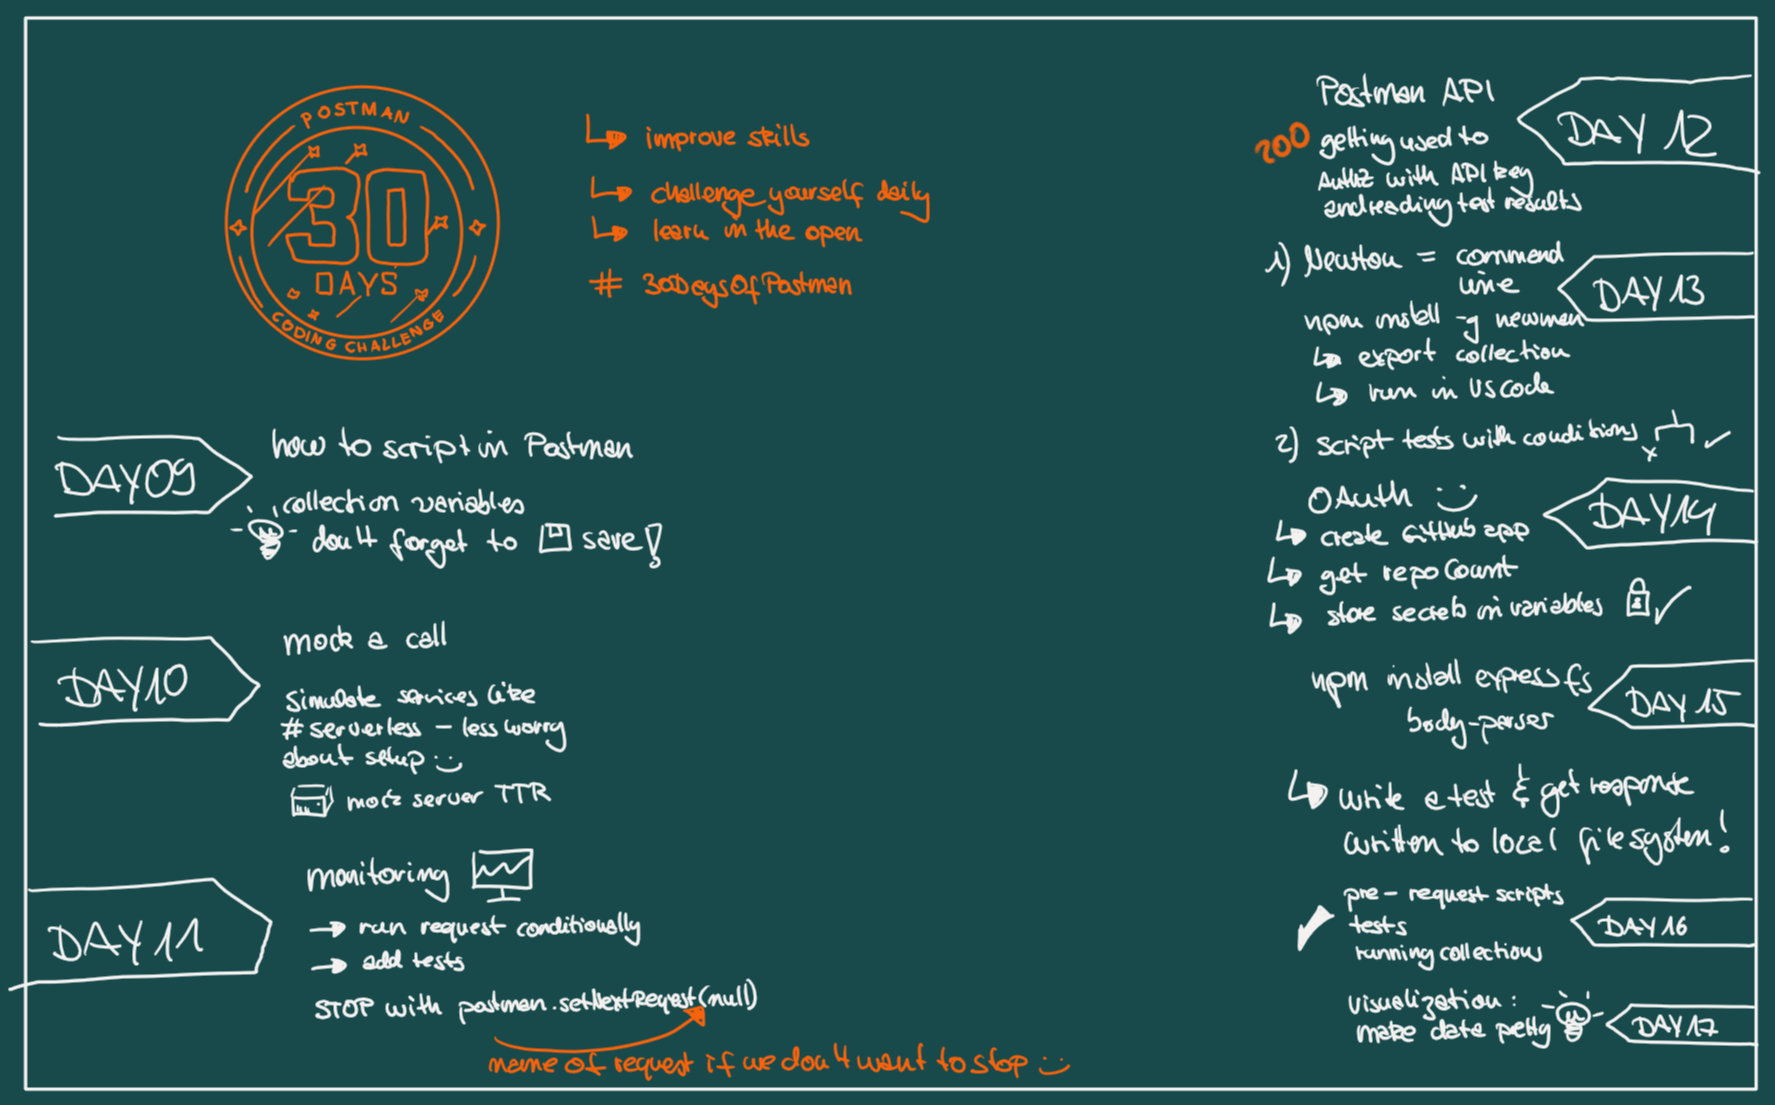 POSTMAN
30
DAYS
CODING CHALLENGE
improve skills
challenge yourself daily
learn in the open
# 30DaysOfPostman
DAY09
how to script in Postman
collection variables
don't forget to save!
DAY10
mock a call
simulate services like
#serverless - less worry
about setup :)
mock server TTR
DAY11
monitoring
→ run request conditionally
→ add tests
STOP with postman.setNextRequest(null)
name of request if we don't want to stop :)
DAY 12
Postman API
200 getting used to
AuthZ with API key
and reading test results
DAY13
1) Newton = command
line
npm install -g newman
export collection
run in VS Code
2) script tests with conditions x ✓
DAY14
OAuth :)
create GitHub app
get repo Count
store secrets in variables ✓
DAY 15
npm install express fs
body-parser
write a test & get response
written to local filesystem!
DAY16
pre-request scripts
✓ tests
running collections
DAY17
visualization:
make data petty